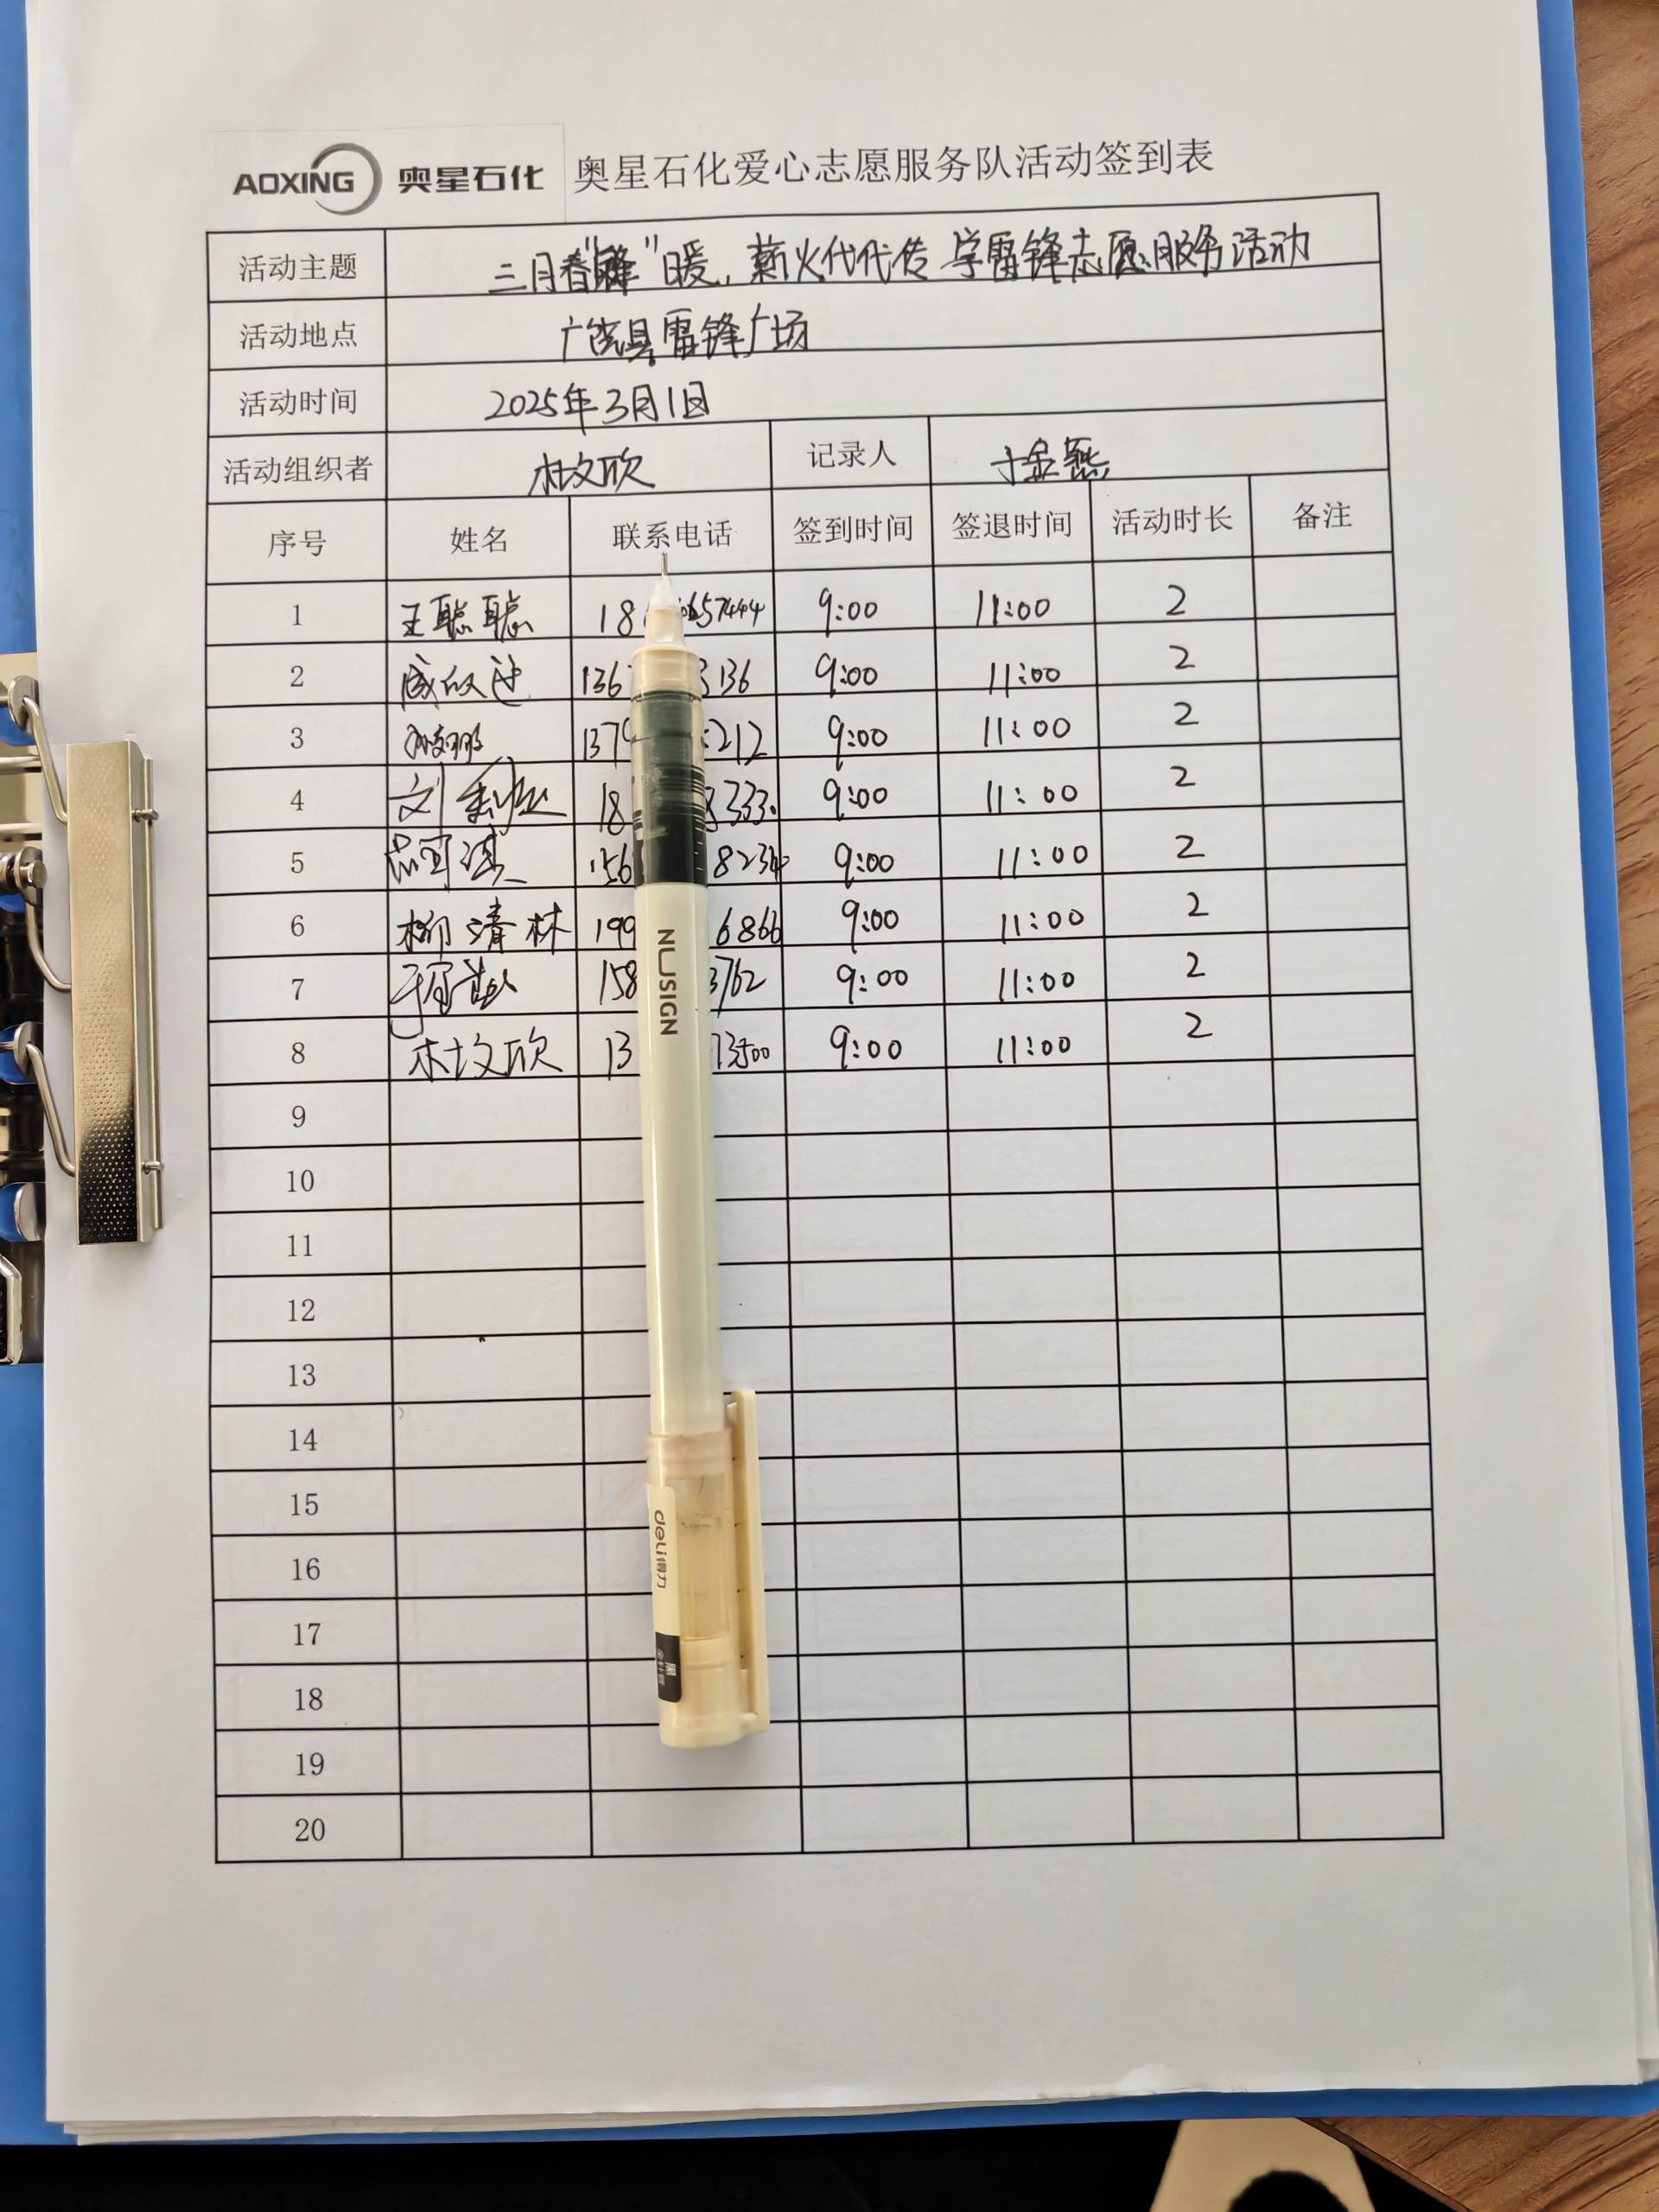 AOXING 奥星石化 奥星石化爱心志愿服务队活动签到表
活动主题 三月春"锋"暖，薪火代代传 学雷锋志愿服务活动
活动地点 广饶县雷锋广场
活动时间 2025年3月1日
活动组织者 杜文欣 记录人
序号 姓名 联系电话 签到时间 签退时间 活动时长 备注
1 王聪聪 18 657444 9:00 11:00 2
2 136 3136 9:00 11:00 2
3 137 212 9:00 11:00 2
4 刘 18 333 9:00 11:00 2
5 156 823 9:00 11:00 2
6 柳清林 199 6866 9:00 11:00 2
7 158 3762 9:00 11:00 2
8 杜文欣 13 13500 9:00 11:00 2
9
10
11
12
13
14
15
16
17
18
19
20
NUSIGN
deli得力